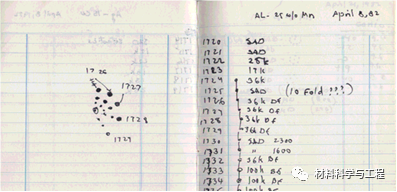 AL-25 w/o Mn April 8, 82
1720 SAD
1721 SAD
1722 25k
1723 17k
1724 36k
1725 SAD (10 Fold ???)
1726 36k Df
1727 36k Df
1728 36k Df
1729 36k Df
1730 SAD 2300
1731 " 1600
1732 36k Bf
1733 100k Bf
1734 100k Df
1726
1727
1728
1729
材料科学与工程